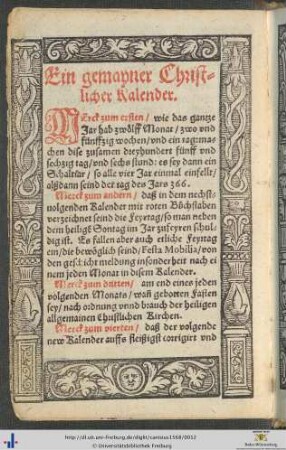 Ein gemayner Christ-
licher Kalender.
MErck zum ersten / wie das gantze
Jar hab zwölff Monat / zwo vnd
fünfftzig wochen / vnd ein tag: ma-
chen dise zusamen dreyhundert fünff vnd
sechzig tag / vnd sechs stund: es sey dann ein
Schaltiar / so alle vier Jar einmal einfelt /
alßdann seind der tag des Jars 366.
Merck zum andern / daß in dem nechst-
uolgenden Kalender mit roten Bůchstaben
verzeichnet seind die Feyrtag / so man neben
dem heiligē Sontag im Jar zufeyren schul-
dig ist. Es fallen aber auch etliche Feyrtag
ein / die bewöglich seind / Festa Mobilia / von
den geschicht meldung insonderheit nach ei
nem jeden Monat in disem Kalender.
Merck zum dritten / am end eines jeden
volgenden Monats / wañ gebotten Fasten
sey / nach ordnung vnnd brauch der heiligen
allgemainen Christlichen Kirchen.
Merck zum vierten / daß der volgende
new Kalender auffs fleissigst corrigirt vnd
http://dl.ub.uni-freiburg.de/diglit/canisius1569/0012
© Universitätsbibliothek Freiburg